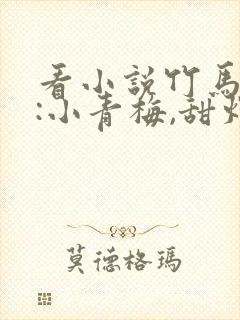 看小說竹馬
:小青梅,甜
莫德格瑪